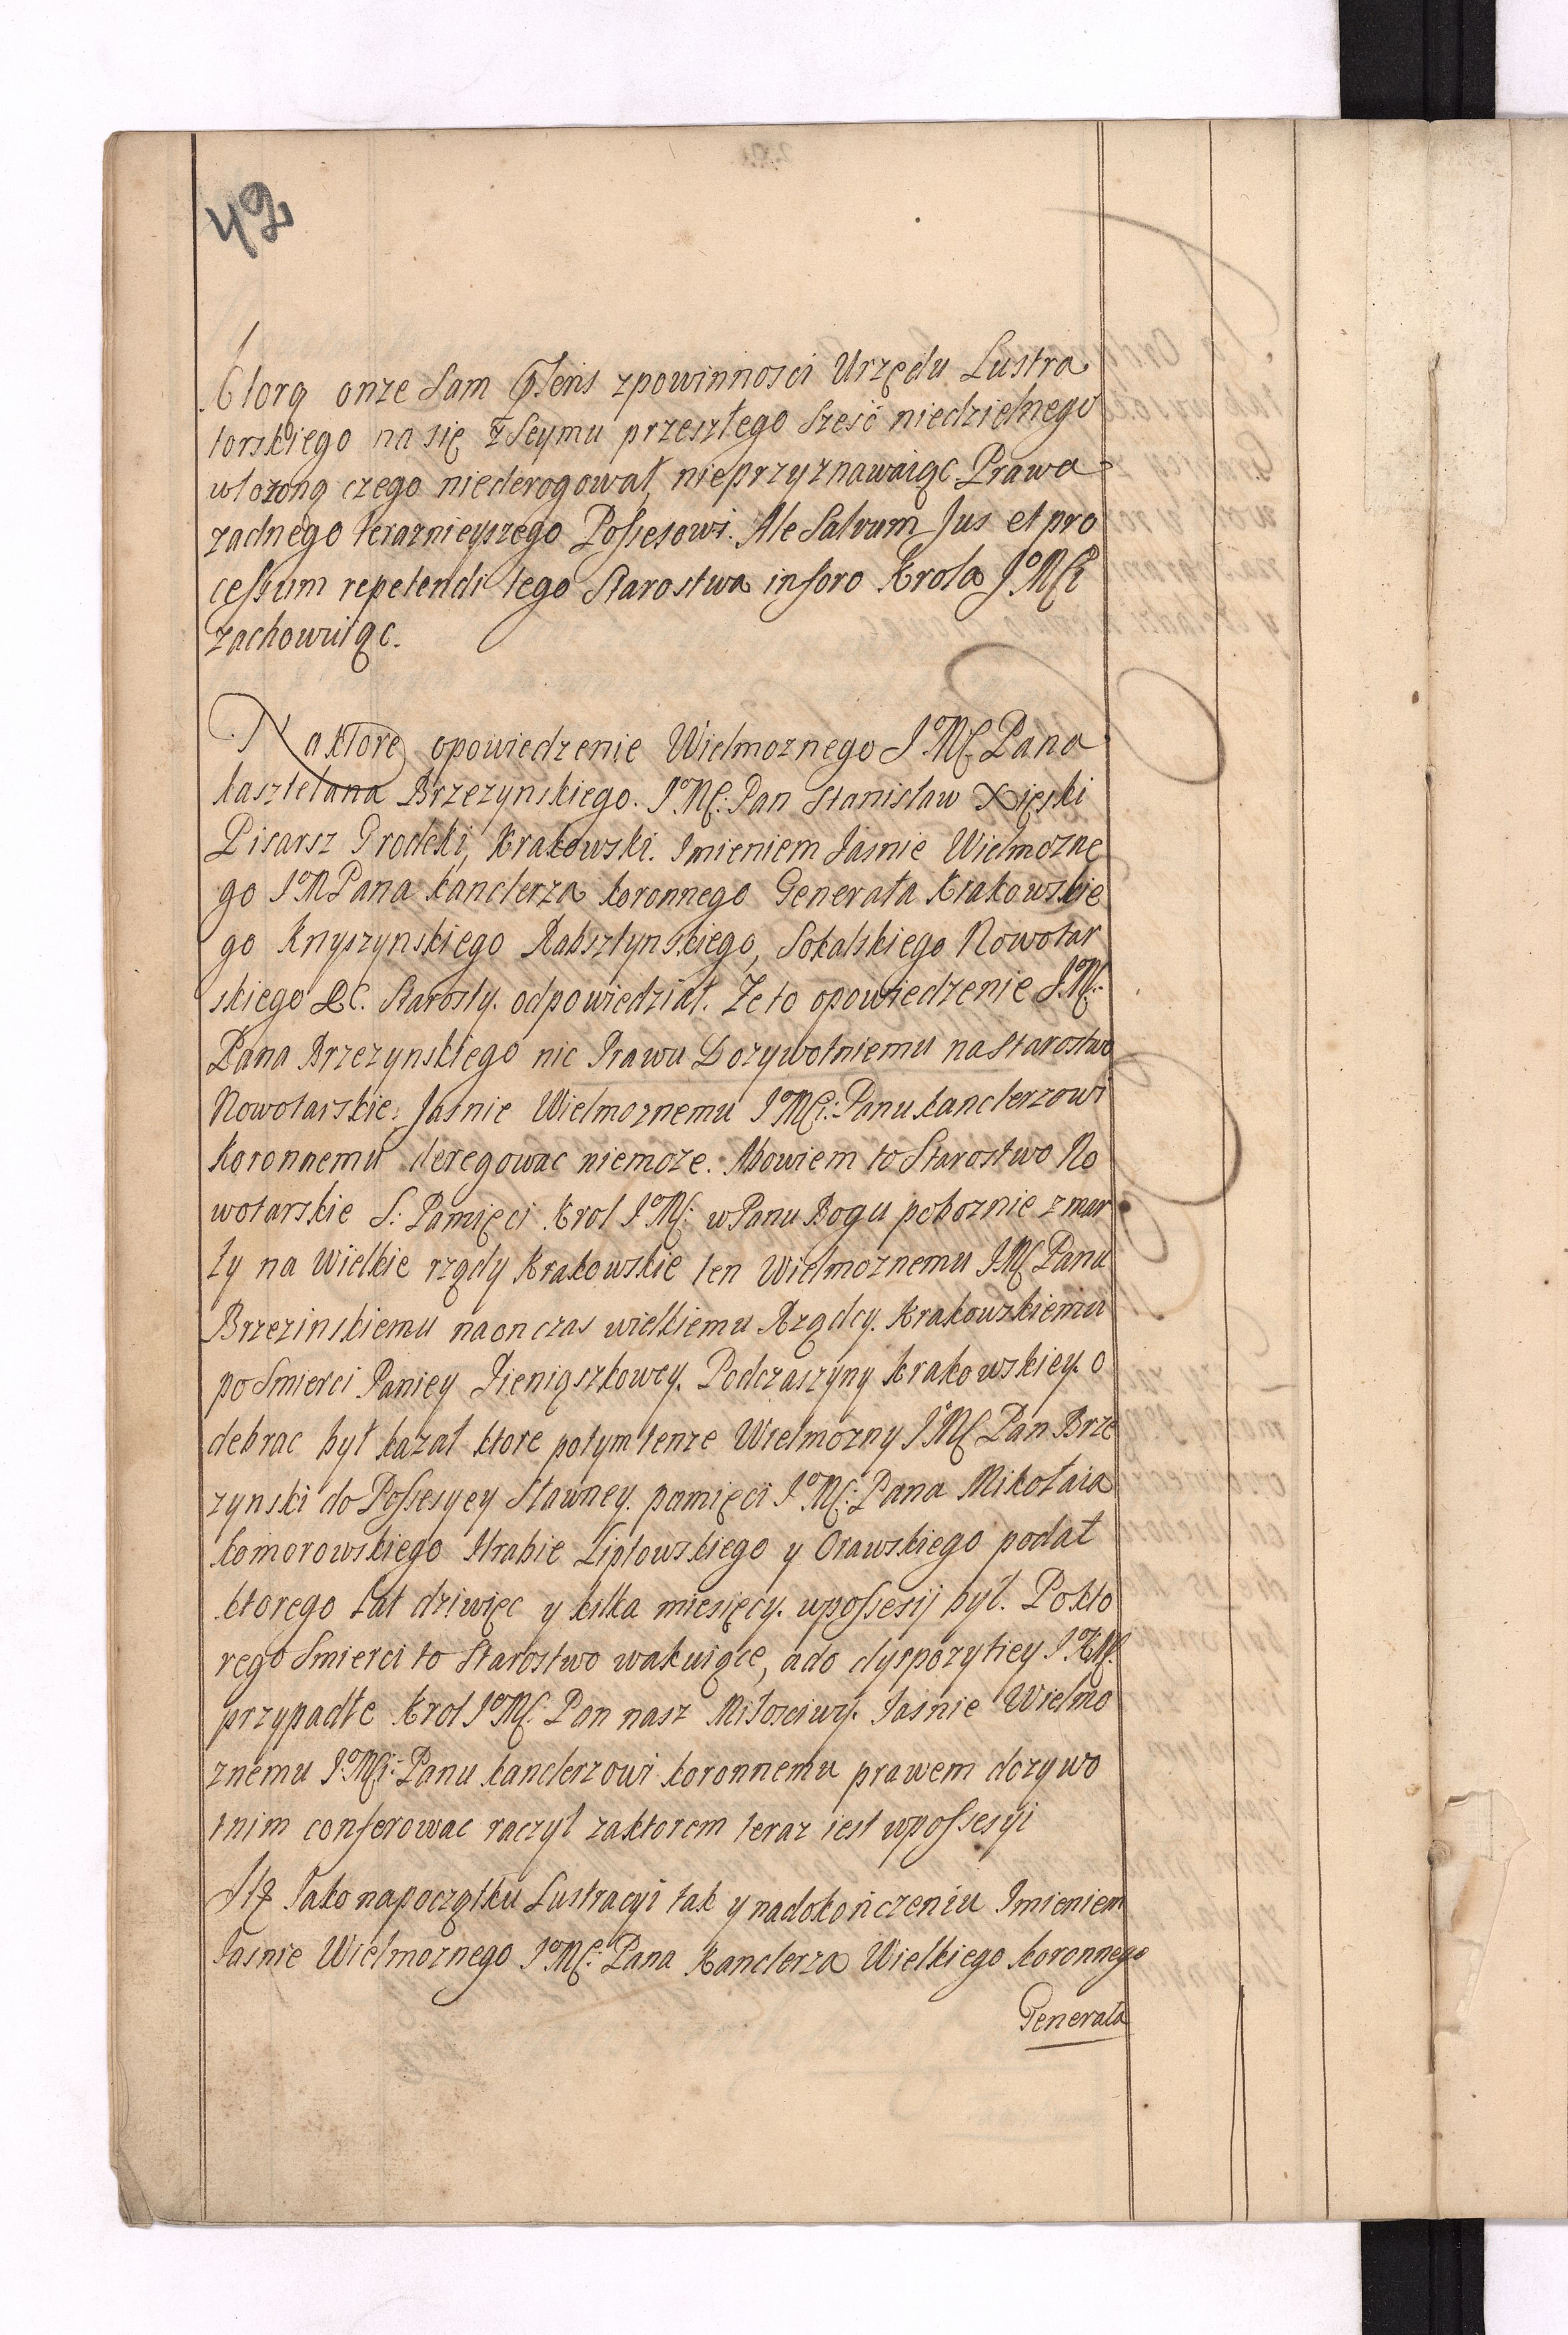 42
ktorą onze Sam Pſens zpowinnosci Urzędu Lustra
torskiego na się z Seymu przeszłego Sześć niedzielnego
włozoną czego niederogował, nieprzyznawaiąc Prawa
zadnego teraznieyszego Poſsesowi. Ale Salvum Jus et pro
ceſsum repetendi tego Starostwa inforo Krola JoMCi
zachowuiąc.
Naktore opowiedzenie Wielmoznego JoMC Pana
kasztelana Brzezynskiego. JoMC: Pan Stanisław Xięski
Pisarsz Grodcki, Krakowski. Imieniem Jasnie Wielmozne
go JoM Pana kanclerza koronnego Generała Krakowskie
go Knyszynskiego Rabsztynskiego, Sokalskiego Nowotar
skiego &c. Starosty. odpowiedział. Ze to opowiedzenie JoMC:
Pana Brzezynskiego nic Prawu Dozywotniemu na Starostwo
Nowotarskie, Jasnie Wielmoznemu JoMCi: Panu kanclerzowi
koronnemu deregowac niemoze. Abowiem to Starostwo No
wotarskie S: Pamięci Krol JoMC: wPanu Bogu poboznie zmar
ły na Wielkie rządy Krakowskie ten Wielmoznemu JMC Panu
Brzezinskiemu naonczas wielkiemu Rządcy. Krakowskiemu
po Smierci Paniey Pieniąszkowey. Podczaszyny Krakowskiey. o
debrac był kazał ktore potym tenze Wielmozny JoMC Pan Brze
zynski do Poſsesyey Sławney. pamięci JoMC: Pana Mikołaia
komorowskiego Hrabie Liptowskiego y Orawskiego podał
ktorego lat dziwięc y kilka miesięcy. upoſsesij był. Pokto
rego Smierci to Starostwo wakuiące, ado dyspozytiey JoKM.
przypadłe Krol JoMC. Pan nasz Miłosciwy. Jasnie Wielmo
znemu JoMCi: Panu kanclerzowi koronnemu prawem dozywo
tnim conferowac raczył zaktorem teraz iest wpoſsesyi
Itq Jako napoczątku Lustracyi tak y nadokończeniu Imieniem
Jasnie Wielmoznego JoMC: Pana Kanclerza Wielkiego koronnego
Generała